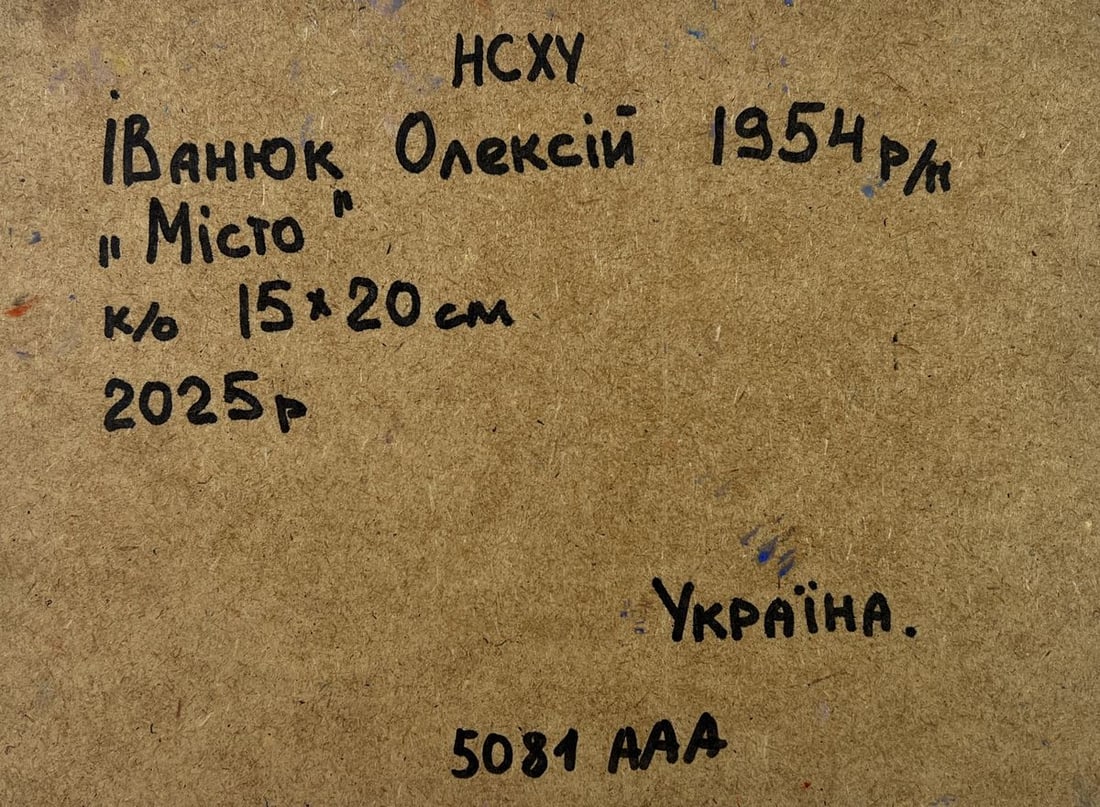 НСХУ
Іванюк Олексій 1954 р/н
„Місто"
к/о 15х20 см
2025 р
Україна.
5081 ААА